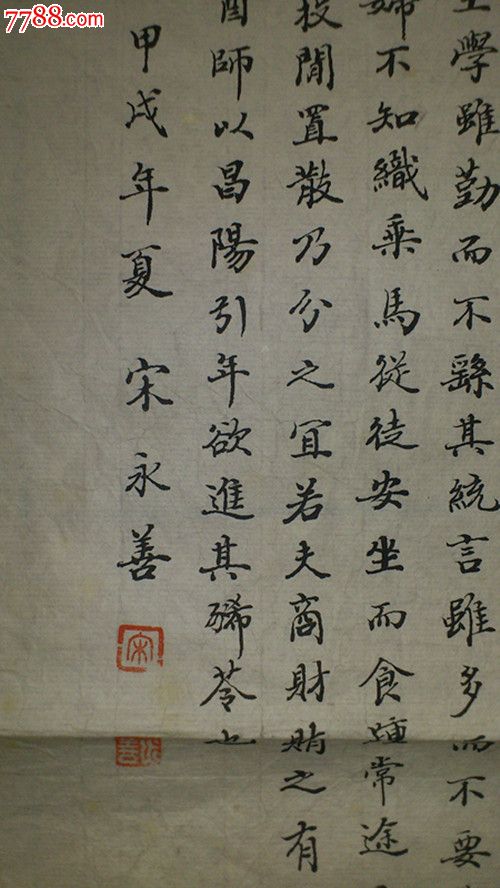 7788.com
生學雖勤而不繇其統言雖多而不要
婦不知織乘馬從徒安坐而食踵常途
投閒置散乃分之宜若夫商財賄之有
酉師以昌陽引年欲進其豨苓也
甲戌年夏 宋永善
宋
永善